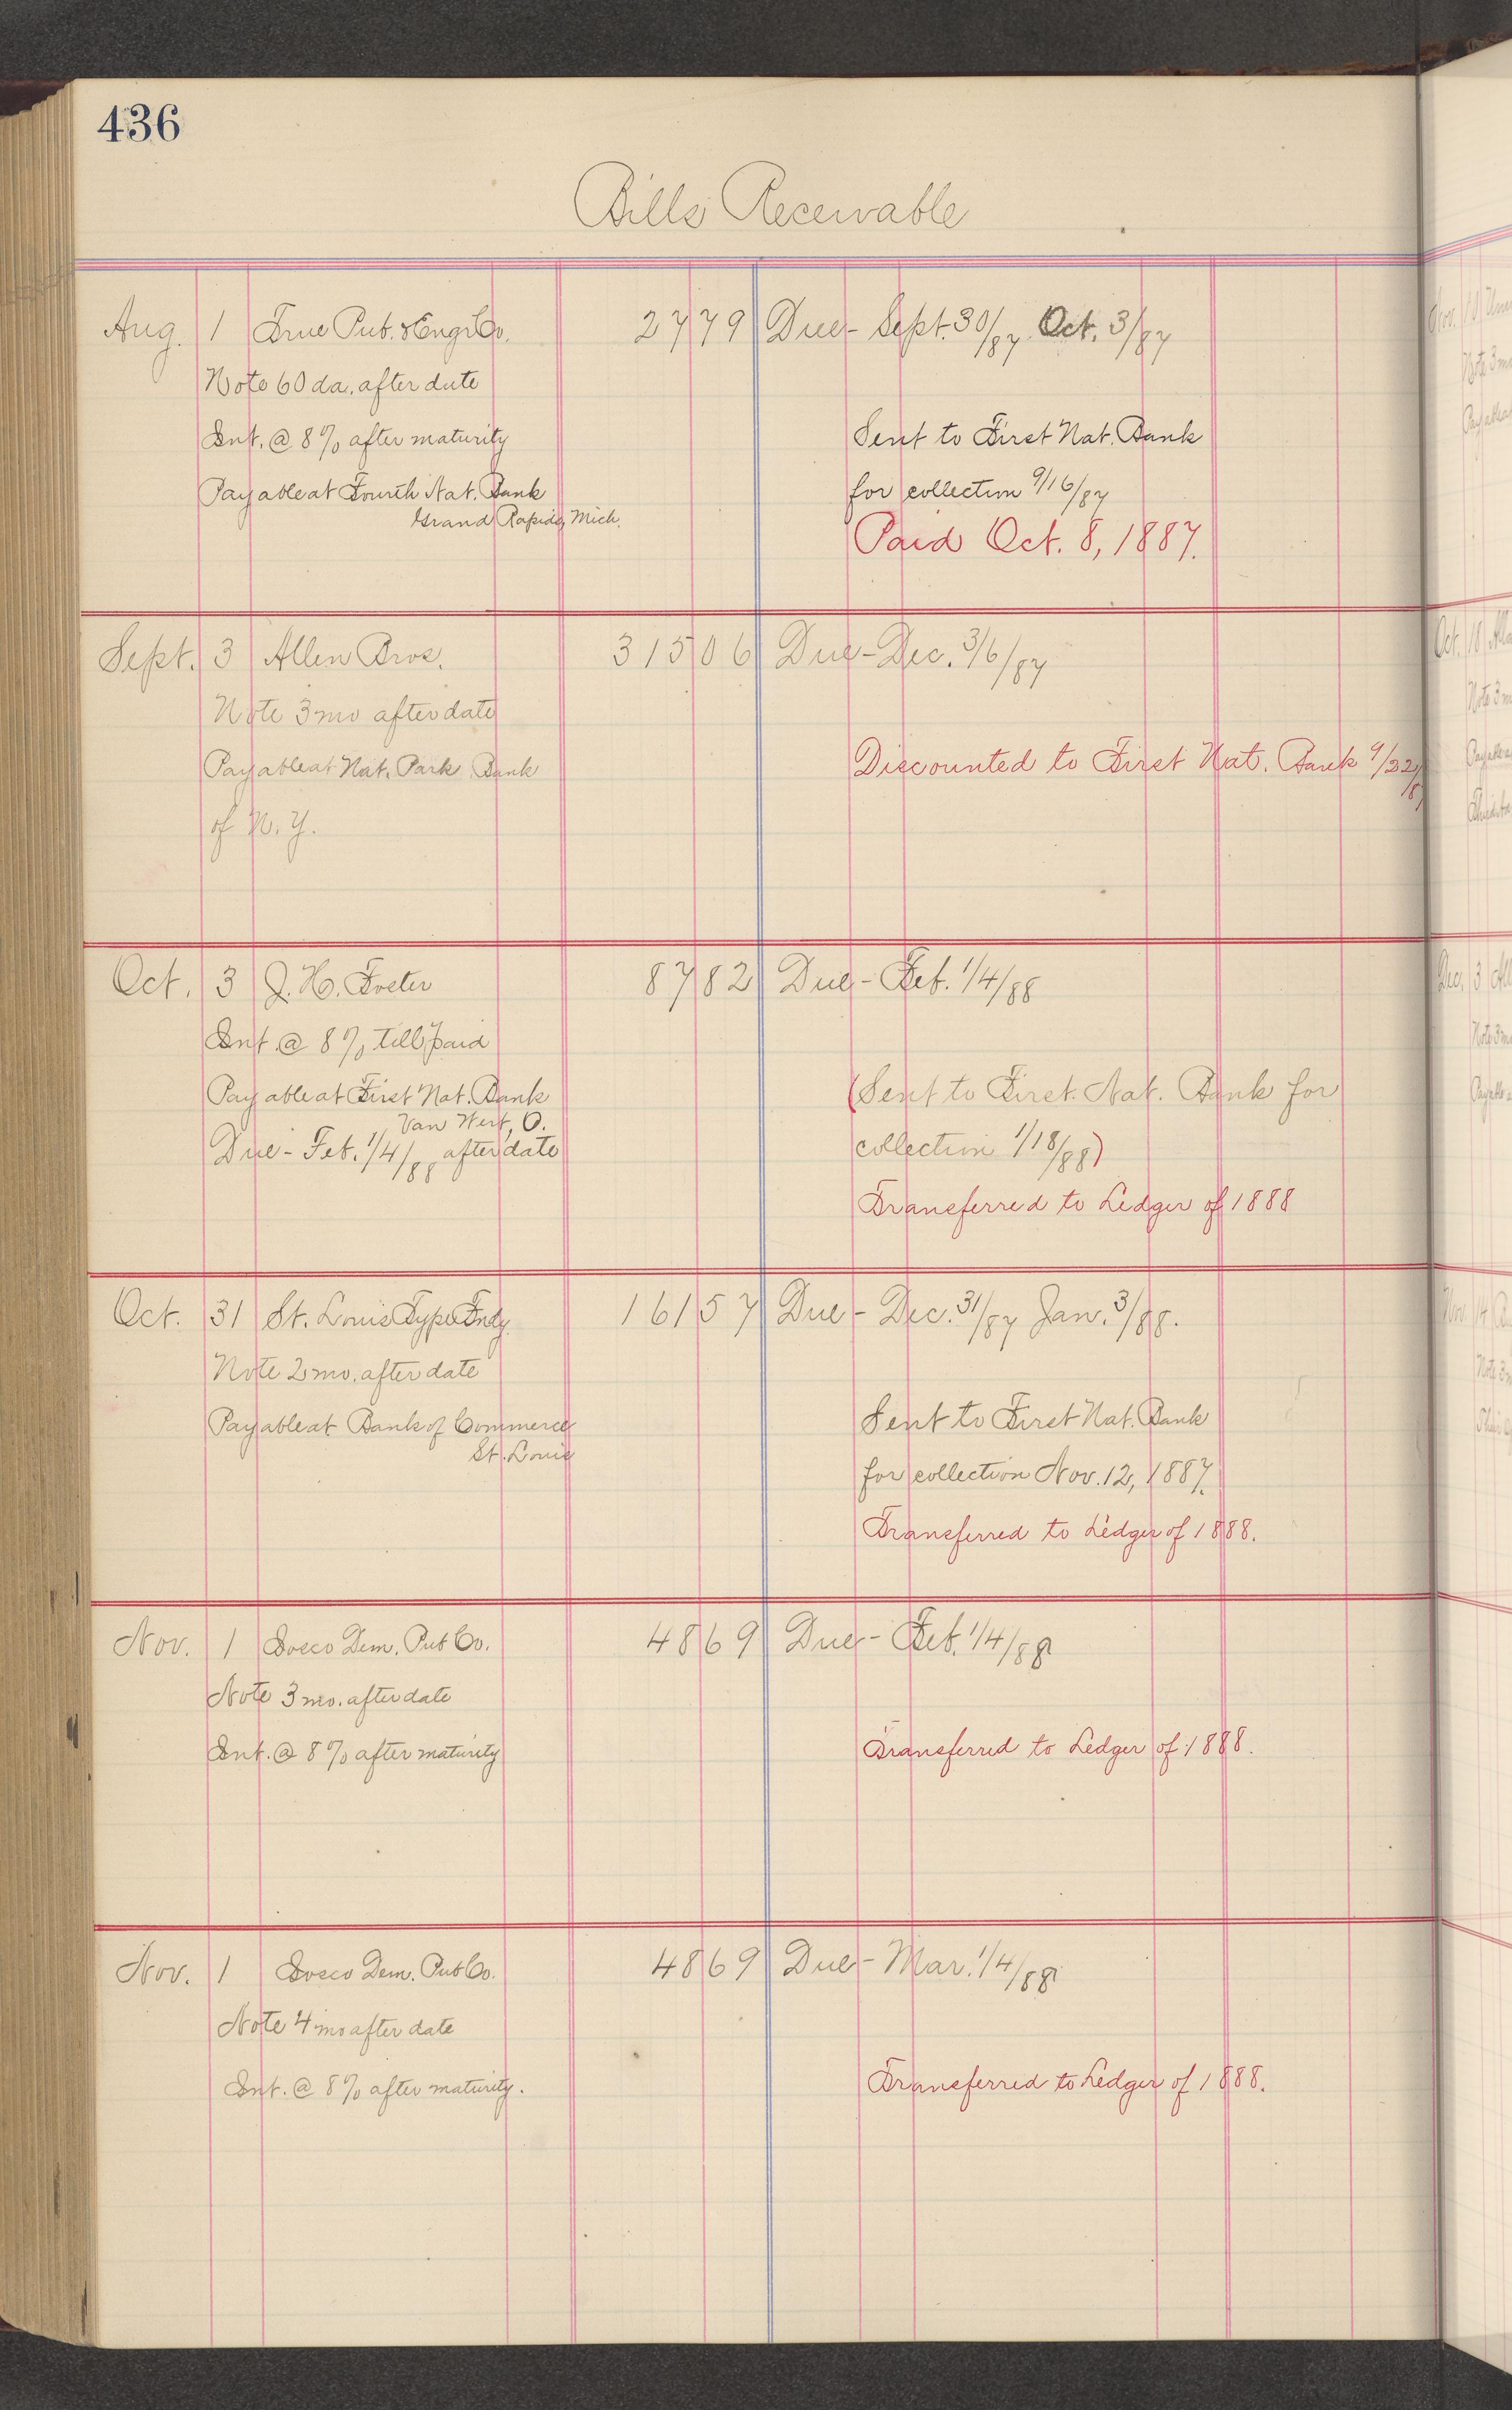 436
Bills Receivable
Aug. 1 True Pub. & Engr. Co. 2779 Due - Sept. 30/87 Oct. 3/87
Note 60 da. after date
Int. @ 8% after maturity Sent to First Nat. Bank
Payable at Fourth Nat. Bank for collection 9/16/87
Grand Rapids, Mich.
Paid Oct. 8, 1887.
Sept. 3 Allen Bros. 31506 Due - Dec. 3/6/87
Note 3 mo after date
Payable at Nat. Park Bank Discounted to First Nat. Bank 9/22/87
of N. Y.
Oct. 3 J. H. Foster 8782 Due - Feb. 1/4/88
Int @ 8% till paid
Payable at First Nat. Bank (Sent to First Nat. Bank for
Van Wert, O.
Due - Feb. 1/4/88 after date collection 1/18/88)
Transferred to Ledger of 1888
Oct. 31 St. Louis Type Fndy. 16157 Due - Dec. 31/87 Jan. 3/88.
Note 2 mo. after date
Payable at Bank of Commerce Sent to First Nat. Bank
St. Louis
for collection Nov. 12, 1887.
Transferred to Ledger of 1888.
Nov. 1 Iosco Dem. Pub Co. 4869 Due - Feb. 1/4/88
Note 3 mo. after date
Int. @ 8% after maturity Transferred to Ledger of 1888.
Nov. 1 Iosco Dem. Pub Co. 4869 Due - Mar. 1/4/88
Note 4 mo after date
Int. @ 8% after maturity. Transferred to Ledger of 1888.